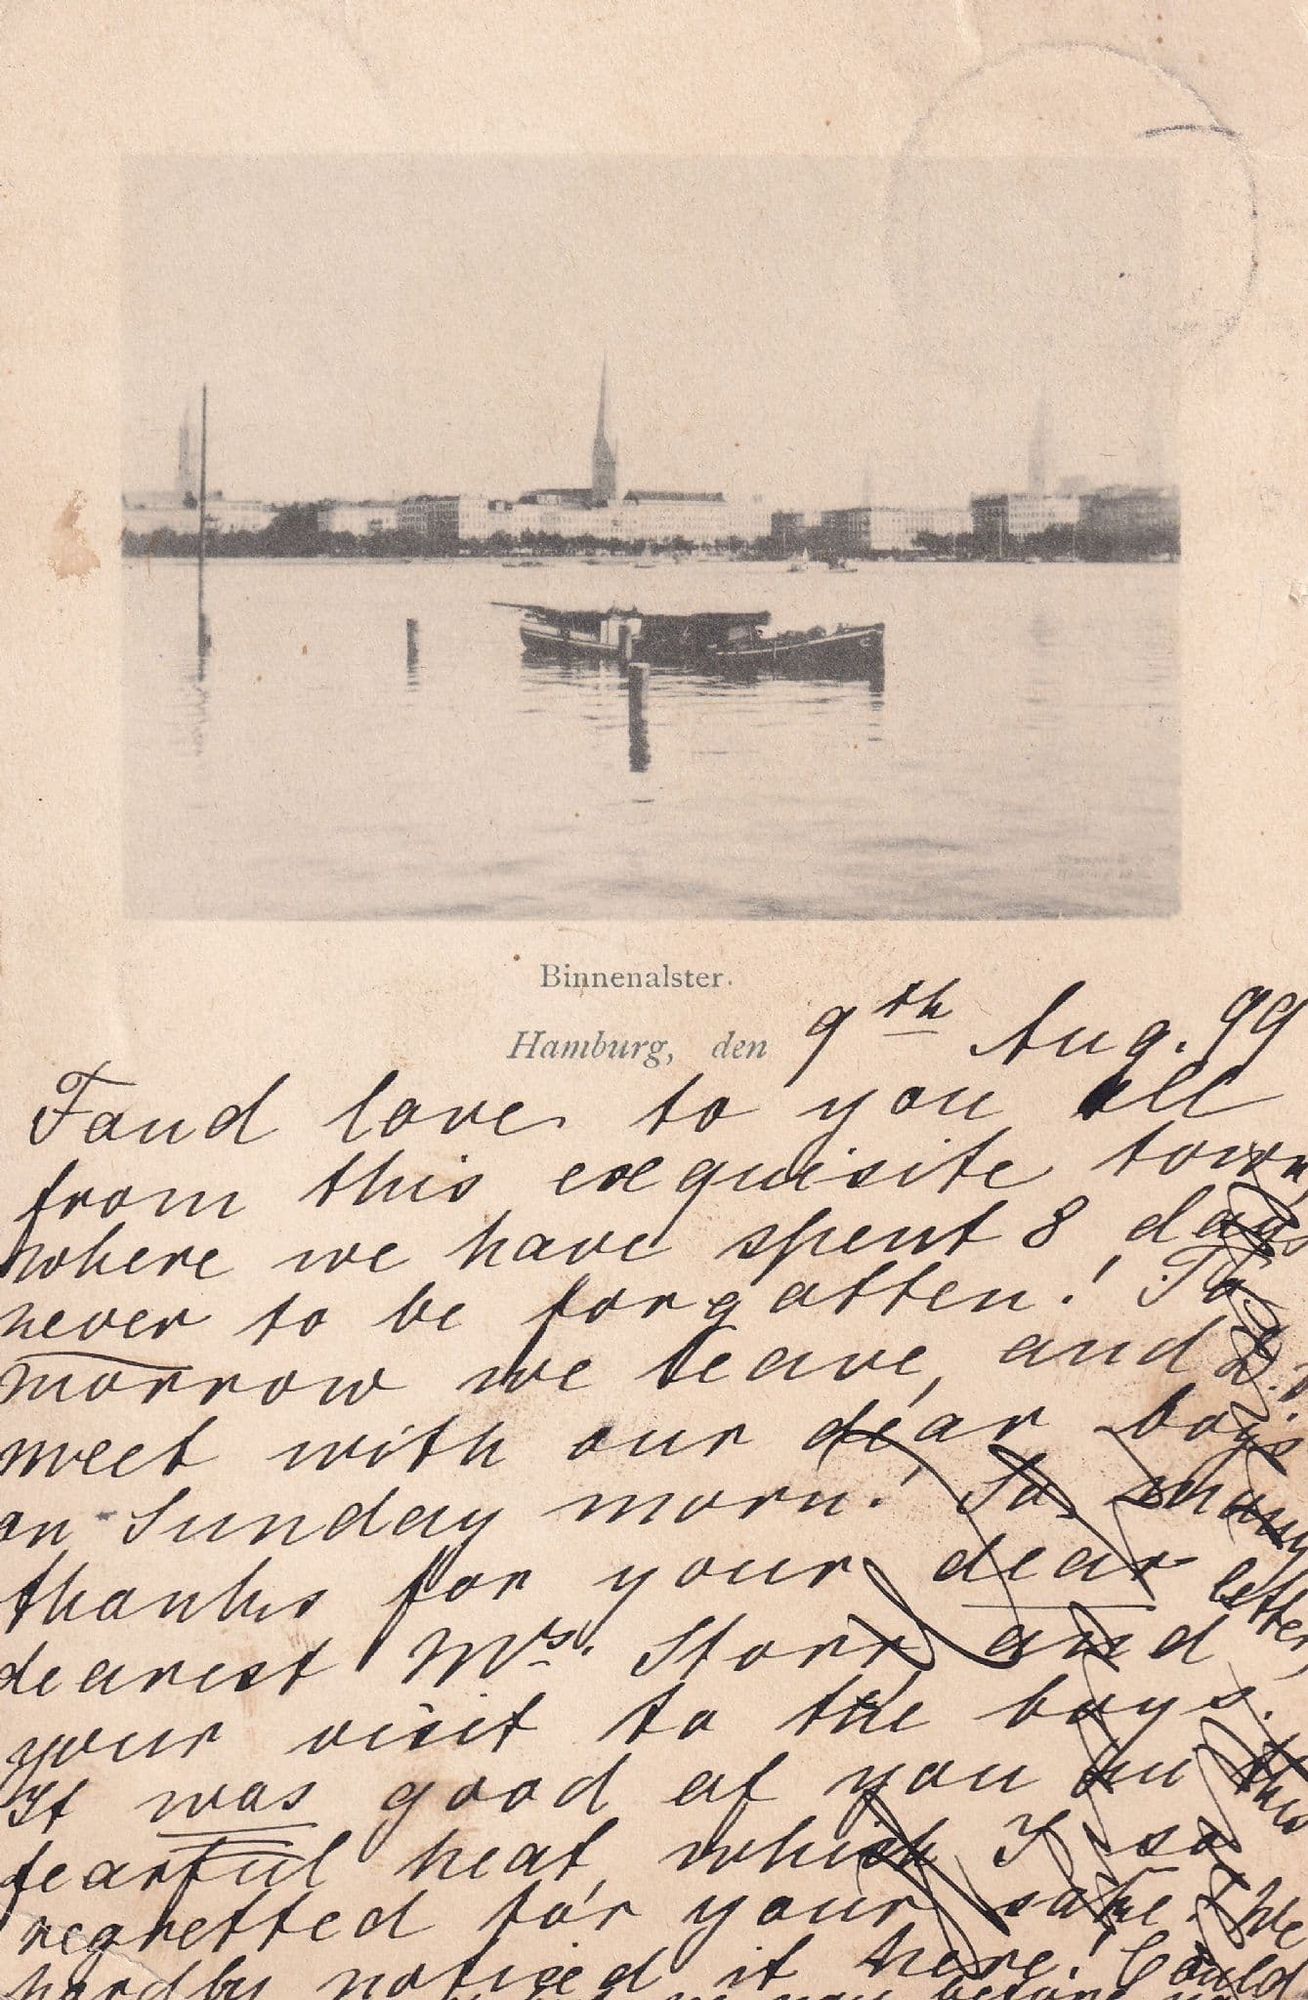 Binnenalster.
Hamburg, den 9th Aug. 99
Fond love to you all
from this exquisite town,
where we have spent 8 days
never to be forgotten! To
morrow we leave, and
meet with our dear boys
on Sunday morn! So many
thanks for your dear letter,
dearest Mrs. Storr and
your visit to the boys.
It was good of you in this
fearful heat, which I so
regretted for your sake! We
hardly noticed it here! Could
you before